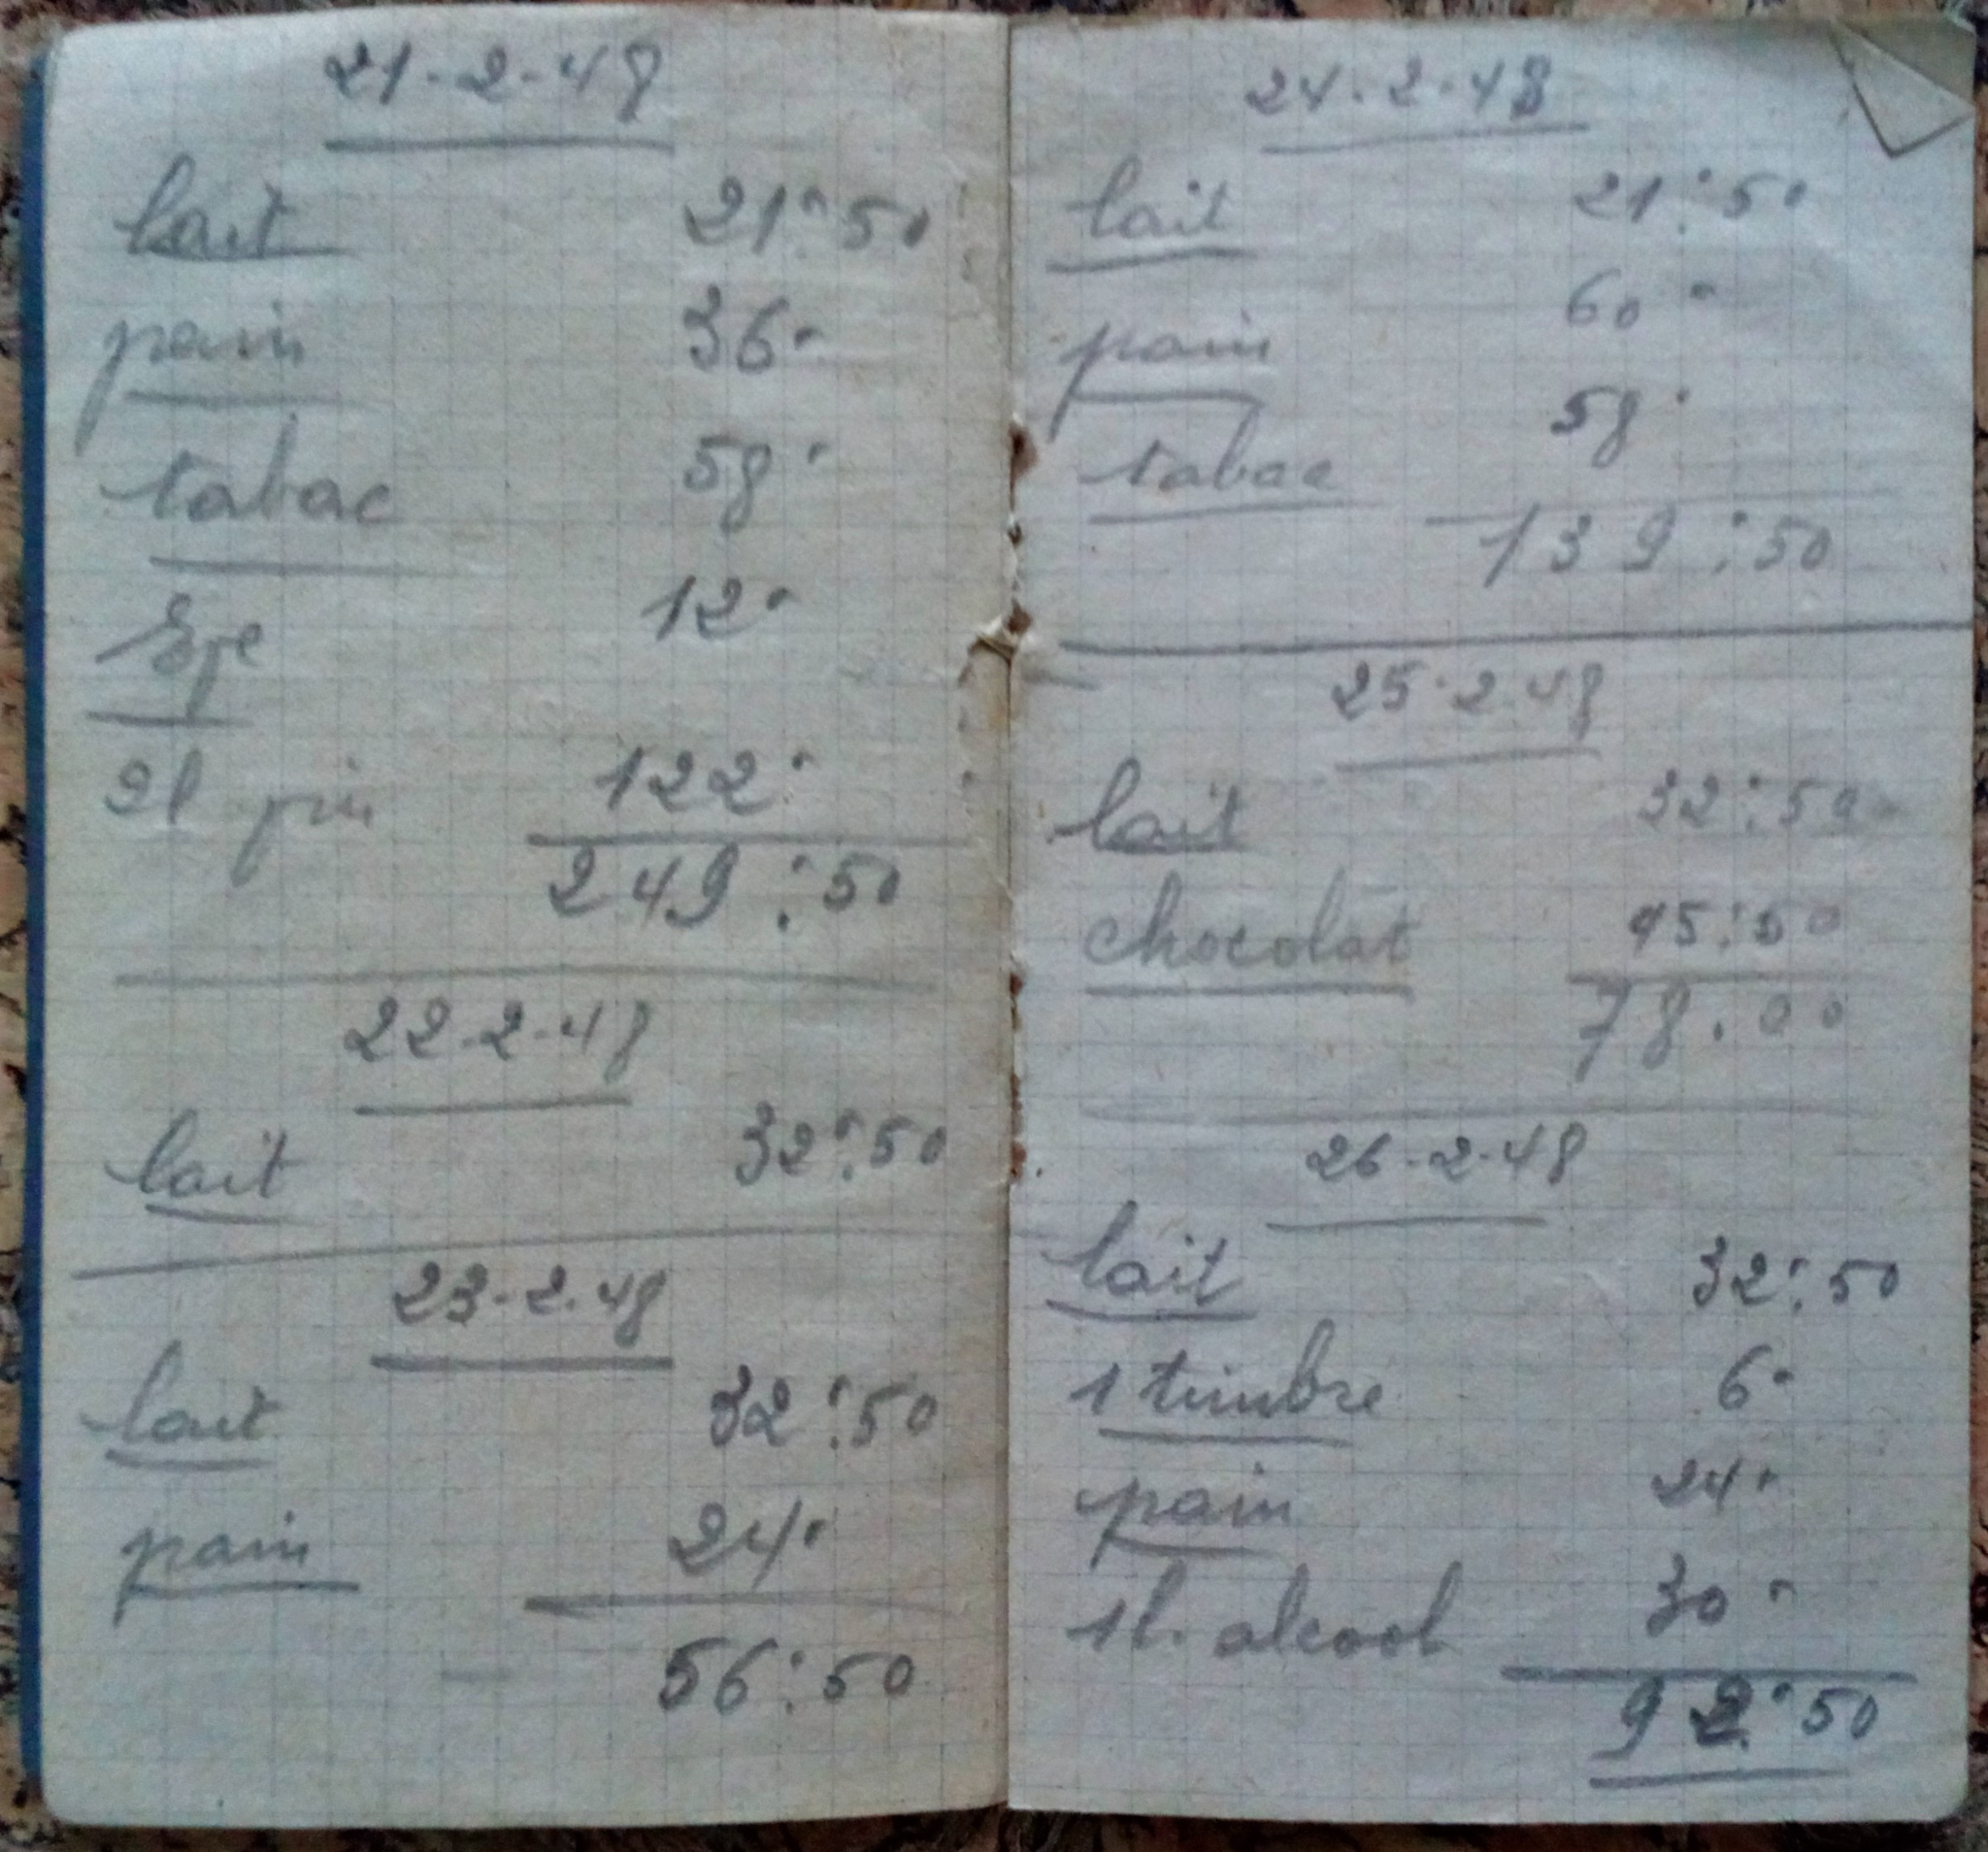 21-2-48
lait 21:50
pain 36"
tabac 58"
12"
2l 122"
249:50
22-2-48
lait 32:50
23-2-48
lait 32:50
pain 24"
56:50
24-2-48
lait 21:50
pain 60"
tabac 58"
139:50
25-2-48
lait 32:50
chocolat 45:50
78.00
26-2-48
lait 32:50
1 timbre 6"
pain 24"
1l. alcool 30"
92:50